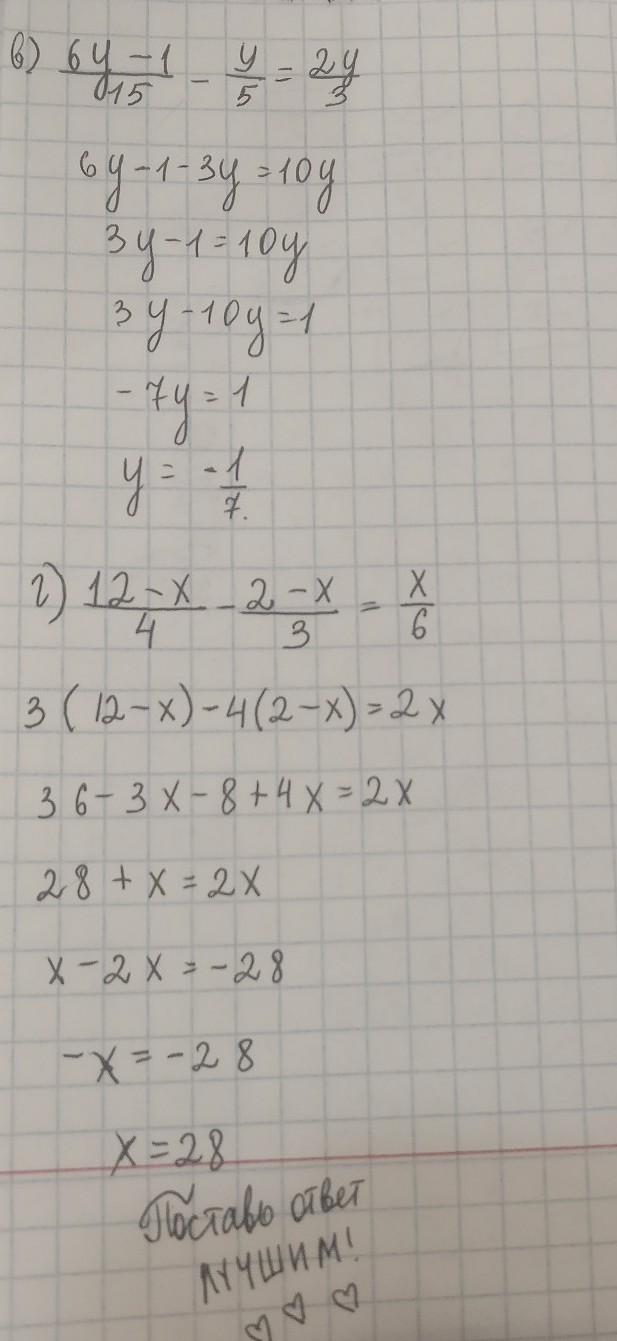 в) (6y - 1)/15 - y/5 = 2y/3
6y - 1 - 3y = 10y
3y - 1 = 10y
3y - 10y = 1
- 7y = 1
y = - 1/7.
г) (12 - x)/4 - (2 - x)/3 = x/6
3 (12 - x) - 4(2 - x) = 2x
36 - 3x - 8 + 4x = 2x
28 + x = 2x
x - 2x = -28
-x = -28
x = 28
Поставю ответ
лучшим! ♡ ♡ ♡